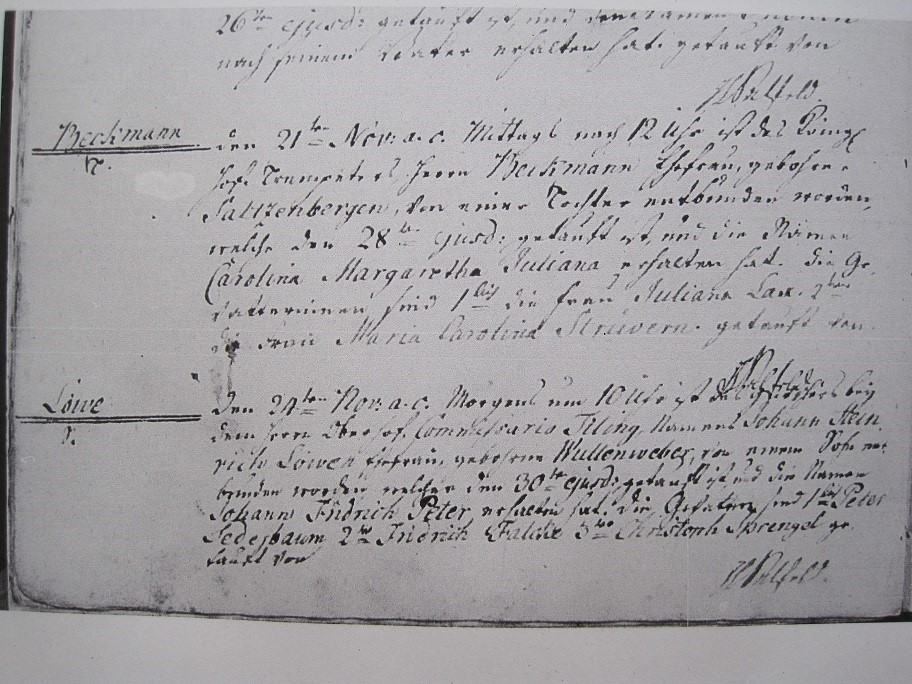 26ten ejusd: getauft ist, und den Namen
nach seinem Vater erhalten hat. getauft von
Beckmann
T.
den 21ten Nov: a. c. Mittags nach 12 Uhr ist des Königl
Hof Trompeters Herrn Beckmann Ehefrau, gebohrne
Saltzenbergen, von einer Tochter entbunden worden,
welche den 28ten ejusd: getauft ist, und die Namen
Carolina Margaretha Juliana erhalten hat. die Ge-
vatterinnen sind 1 die Frau Juliana Lax. 2
die Frau Maria Carolina Strüvern. getauft von
Löwe
S.
den 24ten Nov: a. c. Morgens um 10 Uhr ist des bey
dem Herrn Oberhof. Commissario Namens Johann Hein
rich Löwen Ehefrau, gebohrne Wullenweber, von einem Sohn ent-
bunden worden welcher den 30ten ejusd: getauft ist und die Namen
Johann Fridrich Peter erhalten hat. die Gevattern sind 1 Peter
Federbaum 2 Fridrich Falcke 3 Christoph Sprengel ge-
tauft von